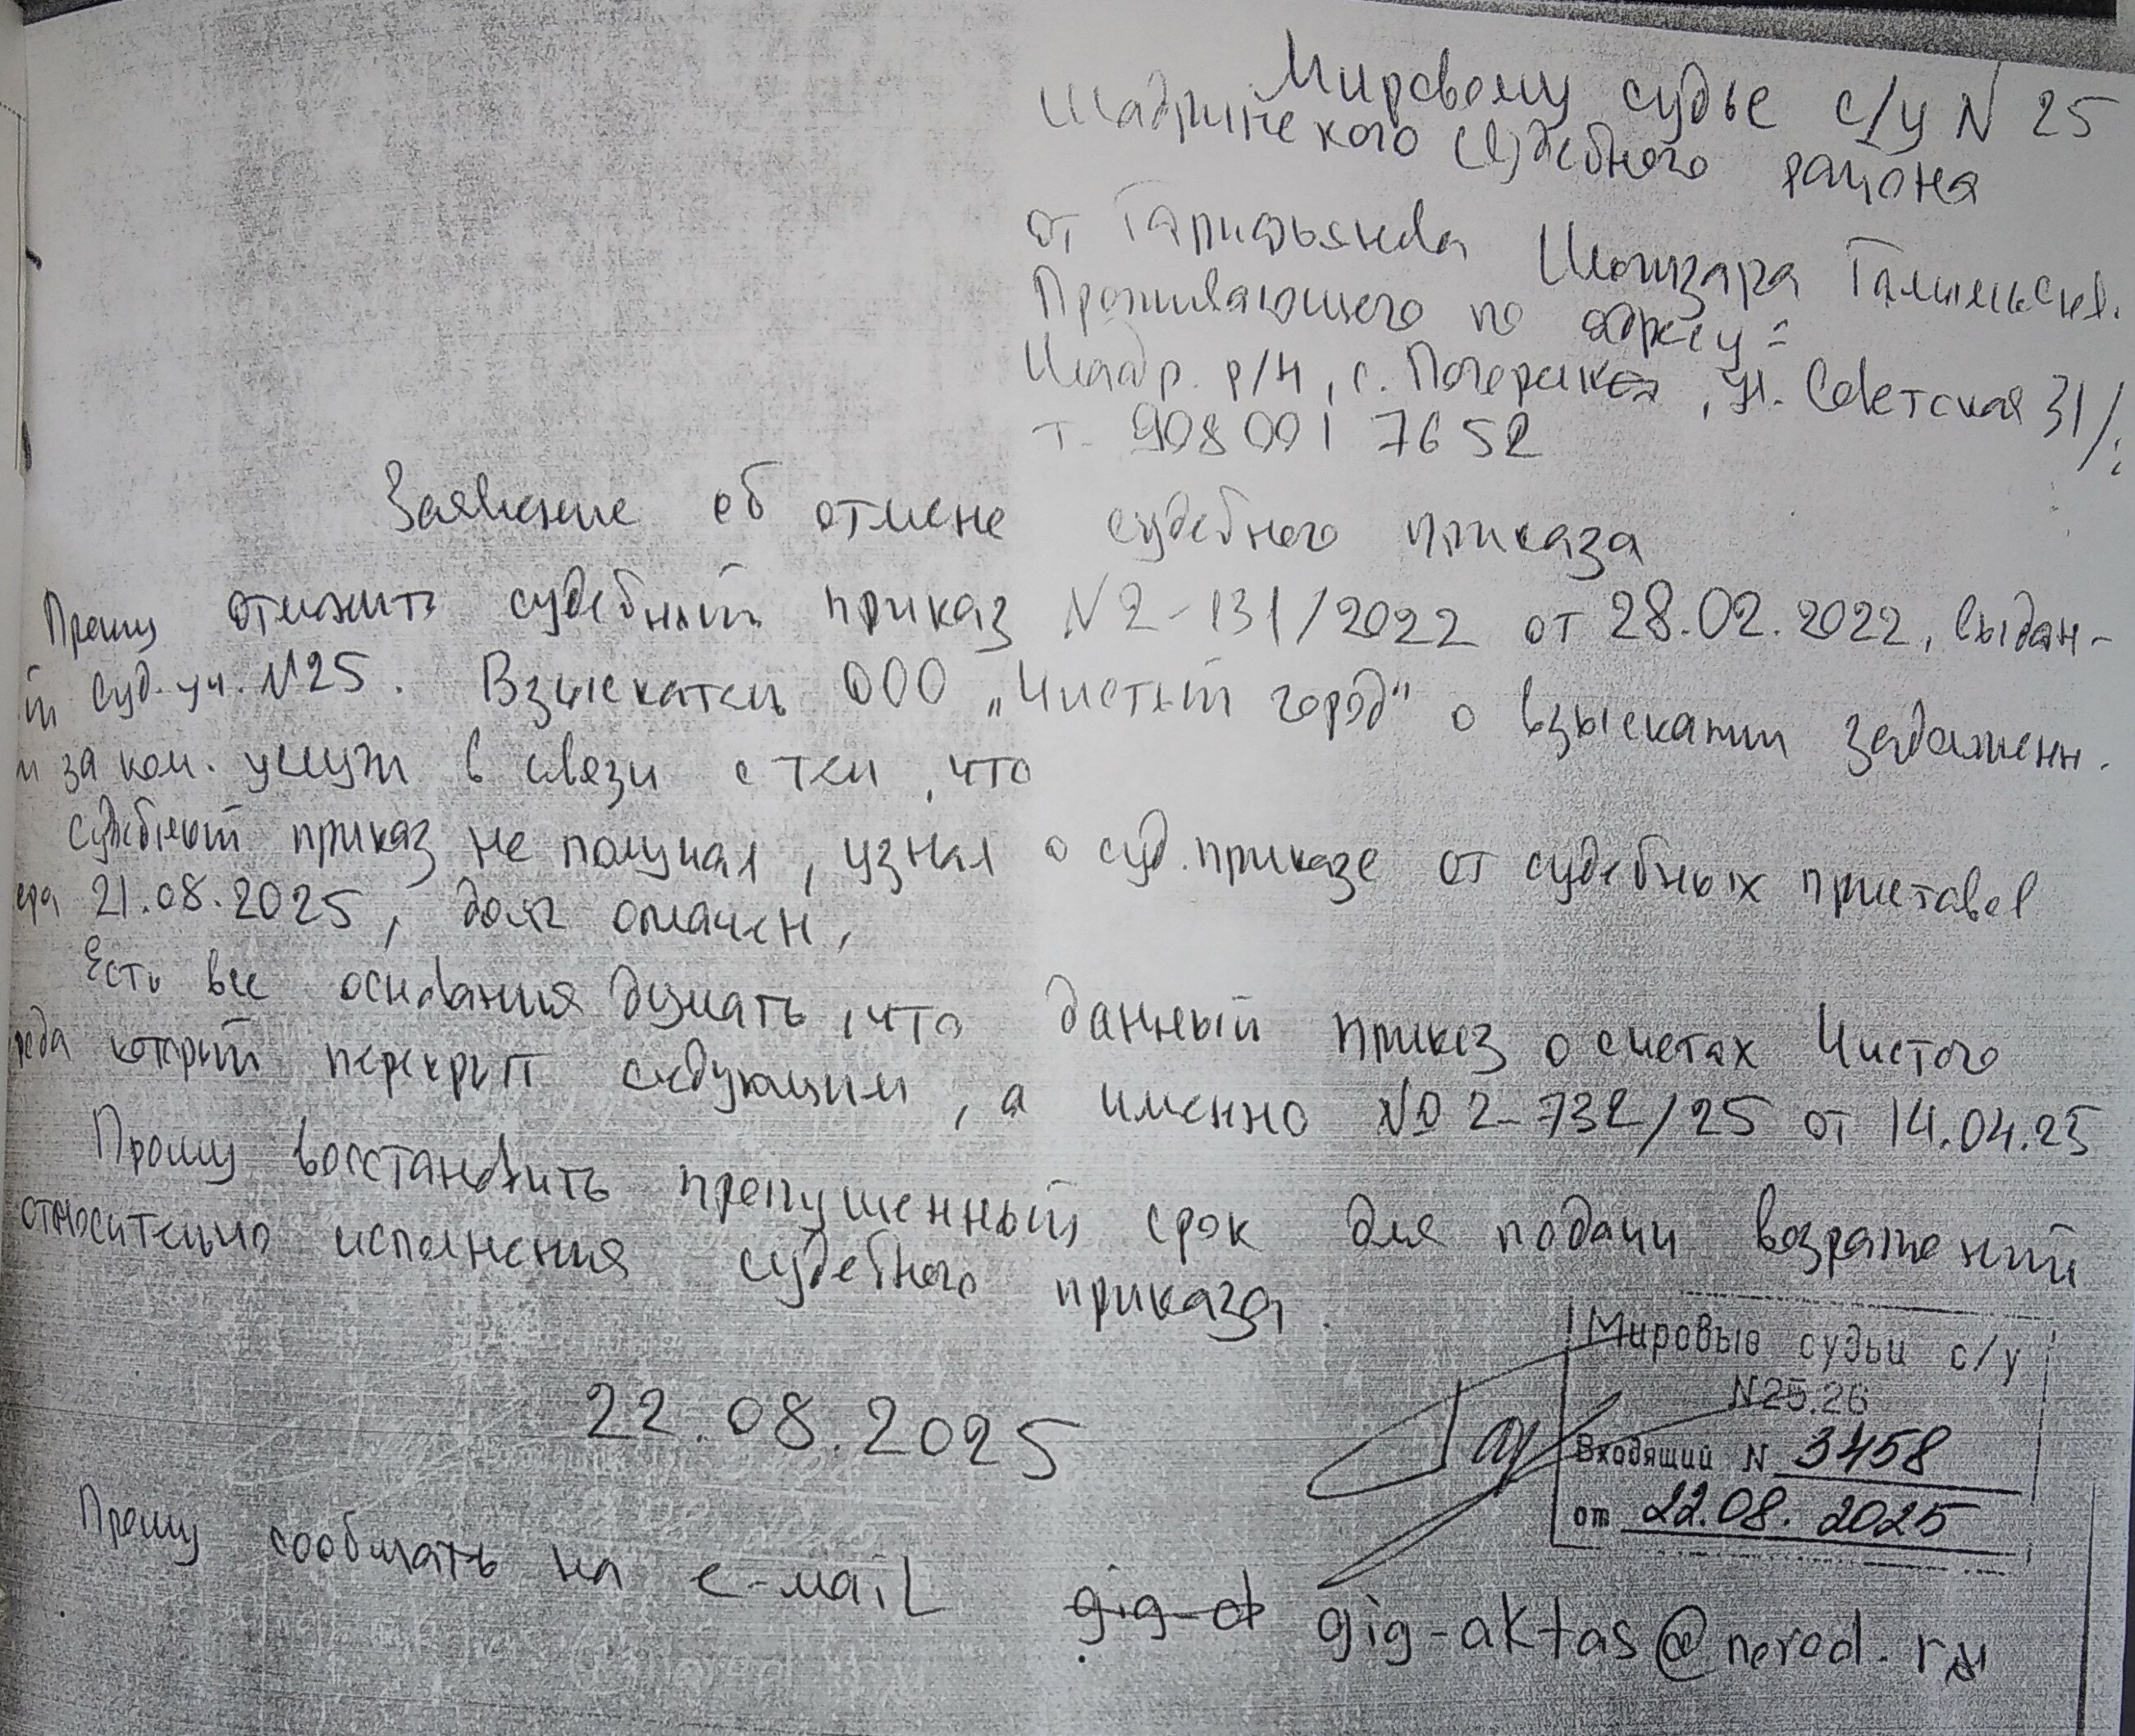 Мировому судье с/у N 25
Шадринского судебного района
от Гарифьянова Гал
Проживающего по адресу:
Шадр. р/н, с. Погорелка, ул. Советская 31/
т. 908 001 7652
Заявление об отмене судебного приказа
Прошу отменить судебный приказ N 2-131/2022 от 28.02.2022, выдан-
й суд. уч. N25. Взыскатель ООО „Чистый город" о взыскании задолженн.
и за ком. услуги в связи с тем, что
Судебный приказ не получал, узнал о суд. приказе от судебных приставов
ера 21.08.2025, долг оплачен,
Есть все основания думать, что данный приказ о счетах Чистого
рода который перекрыт следующим, а именно № 2-732/25 от 14.04.25
Прошу восстановить пропущенный срок для подачи возражений
относительно исполнения судебного приказа.
Мировые судьи с/у
N25.26
22.08.2025
Входящий N 3458
от 22.08.2025
Прошу сообщать на e-маiL gig-a gig-aktas@narod.ru